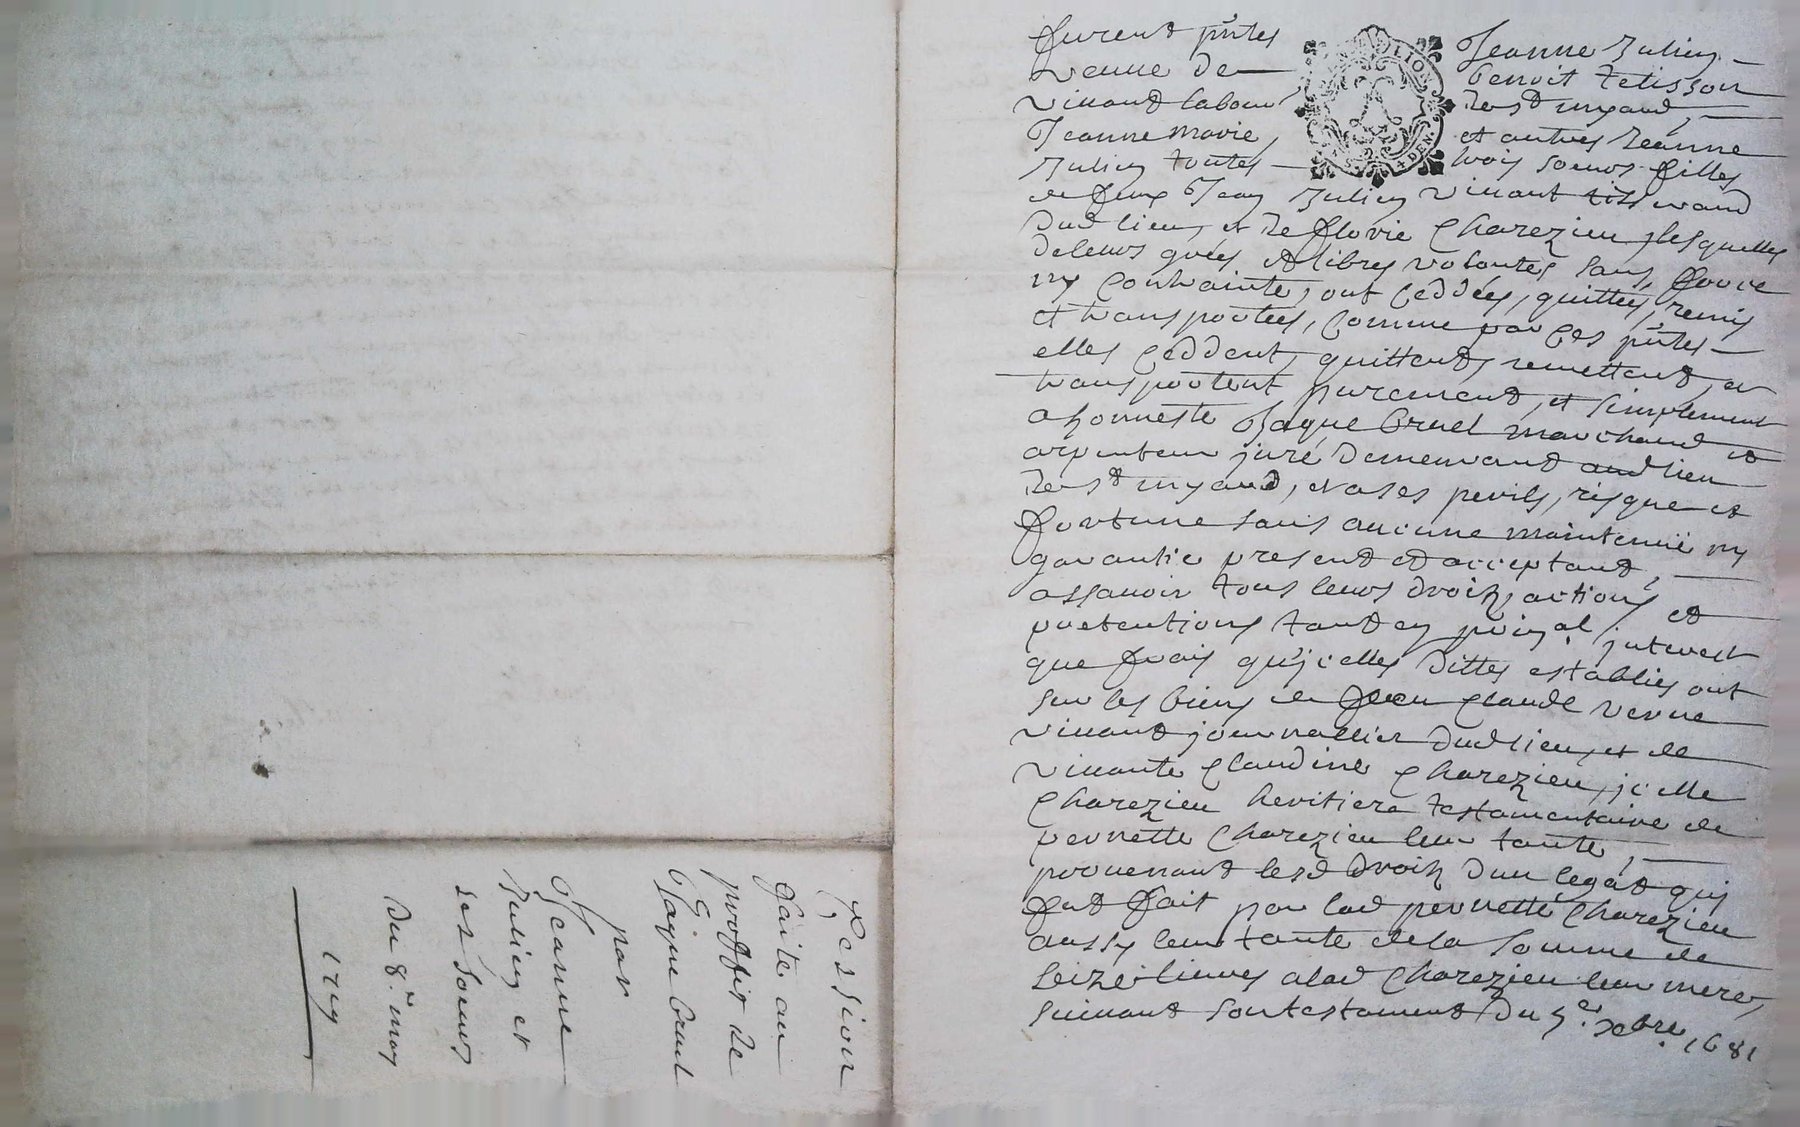 Cession
faite au
proffit de
Jaque Bruel
par
Jeanne
Julien et
ses soeurs
Du 8e may
furent pntes Jeanne Julien
veuve de benoit tetisson
vivant labour de st myand,
Jeanne marie, et autres Jeanne
Julien toutes trois soeurs filles
de feux Jean Julien vivant tisserand
dud lieu, et de florie Charezieu, lesquelles
de leurs grées et libres volontes sans force
ny contrainte, ont ceddées, quittées, remis
et transportées, comme par ces pntes
elles ceddent, quittent, remettent, et
transportent purement, et simplement
a honneste Jaque bruel marchand et
arpenteur juré demeurant aud lieu
de st myand, et a ses perils, risque et
fortune sans aucune maintenüe ny
garantie present et acceptant,
assavoir tous leurs droitz, actions et
pretentions tant en prinal, interest
que frais qu'icelles dittes establies ont
sur les biens de feu Claude verne
vivant journallier dud lieu, et de
vivante Claudine Charezieu, icelle
Charezieu heritiere testamentaire de
pernette Charezieu leur tante,
provenant lesd droitz d'un legat qui
fut fait par lad pernette Charezieu
aussy leur tante de la somme de
seize livres a lad Charezieu leur mere,
suivant son testament du 5e xbre. 1681